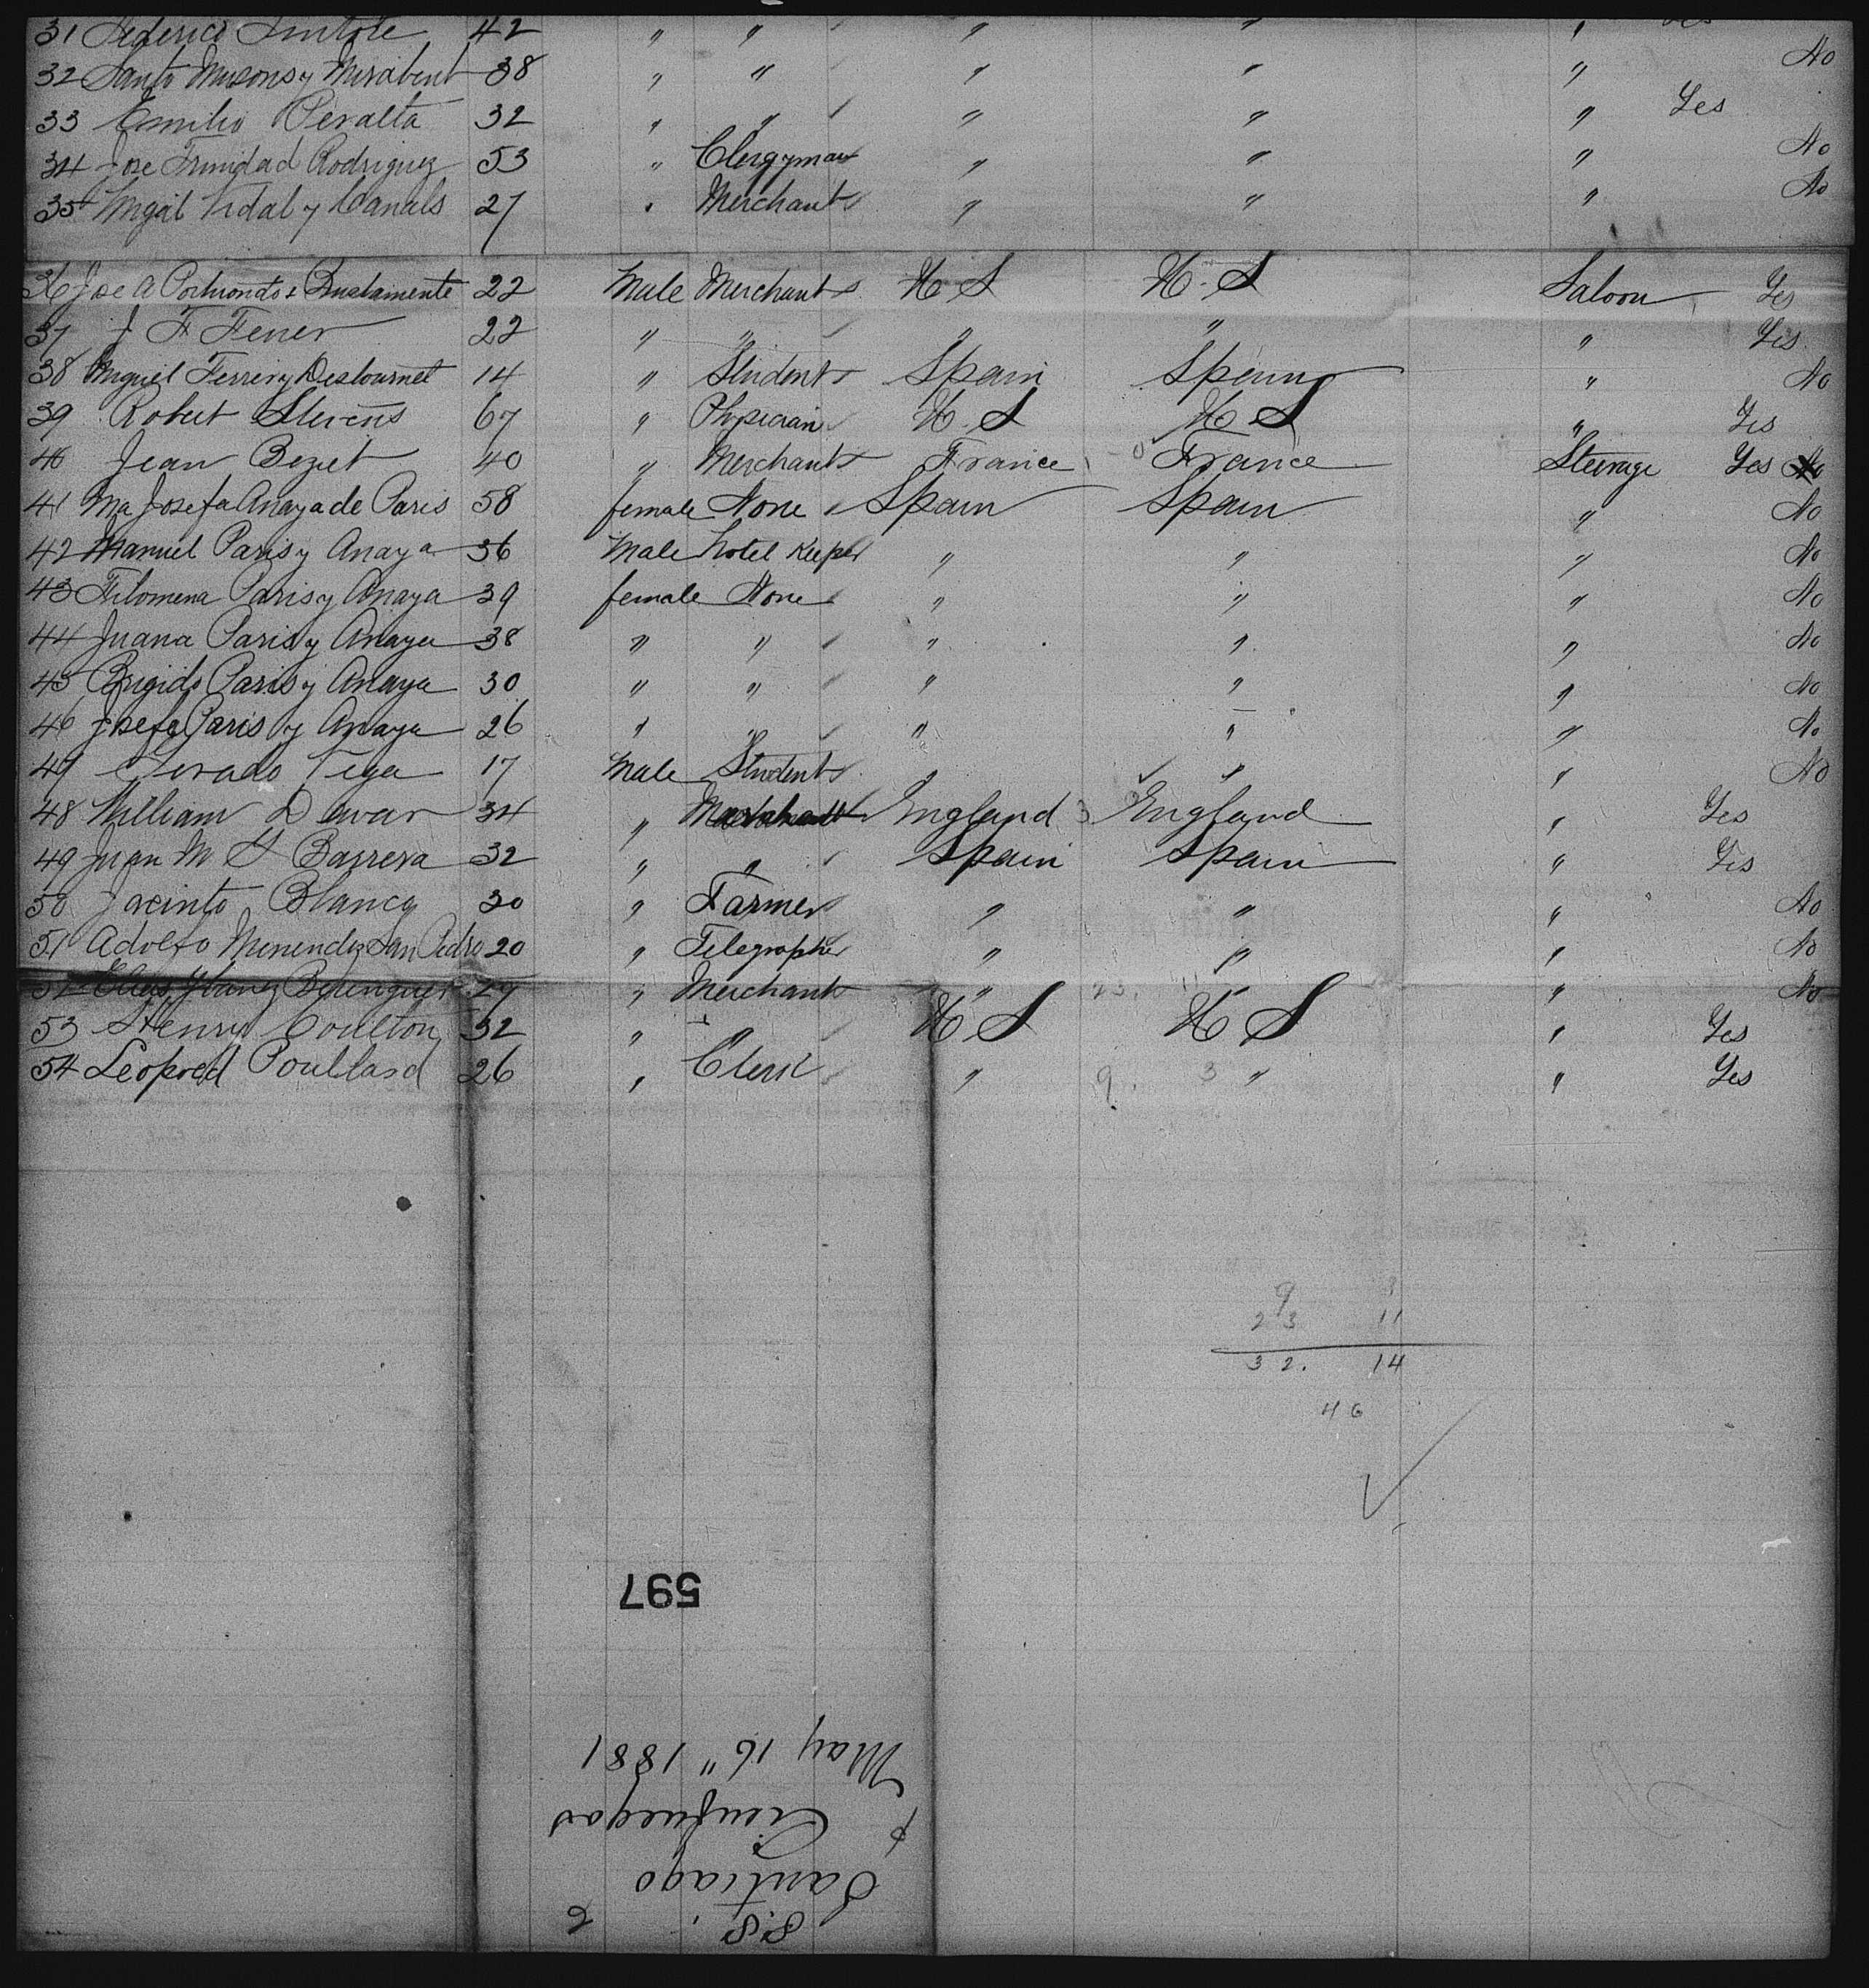 31 Federico 42 " " " " " Yes
32 Santo Musons y Mirabent 38 " " " " " No
33 Emilio Peralta 32 " " " " " Yes
34 Jose Trinidad Rodriguez 53 " Clergyman " " " No
35 Migal Vidal y Canals 27 " Merchant " " " No
36 Jose A Portuondo & Bustamente 22 Male Merchant U S U. S Saloon Yes
37 J F Fener 22 " " " " " Yes
38 Miguel Ferrer y Destournet 14 " Student Spain Spain " No
39 Robert Stevens 67 " Physician U. S U S " Yes
40 Jean Beziet 40 " Merchant France France Steerage Yes No
41 Ma Josefa Anaya de Paris 58 female None Spain Spain " No
42 Manuel Paris y Anaya 36 Male hotel Keeper " " " No
43 Filomena Paris y Anaya 39 female None " " " No
44 Juana Paris y Anaya 38 " " " " " No
45 Brigido Paris y Anaya 30 " " " " " No
46 Josefa Paris y Anaya 26 " " " " " No
47 Tega 17 Male Student " " " No
48 William Dewar 34 " England 3 England " Yes
49 Juan M S Barrera 32 " " Spain Spain " Yes
50 Jacinto Blanca 30 " Farmer " " " No
51 Adolfo Menendez San Pedro 20 " Telegrapher " " " No
52 Elias Ybanez Berenguer 27 " Merchant " 23. 11 " " No
53 Henry Coulton 32 " " U S U S " Yes
54 Leopold Poullard 26 " Clerk " 9. 3 " " Yes
9 3
23 11
32. 14
46
597
S.S.
Santiago
& Cienfuegos
May 16" 1881